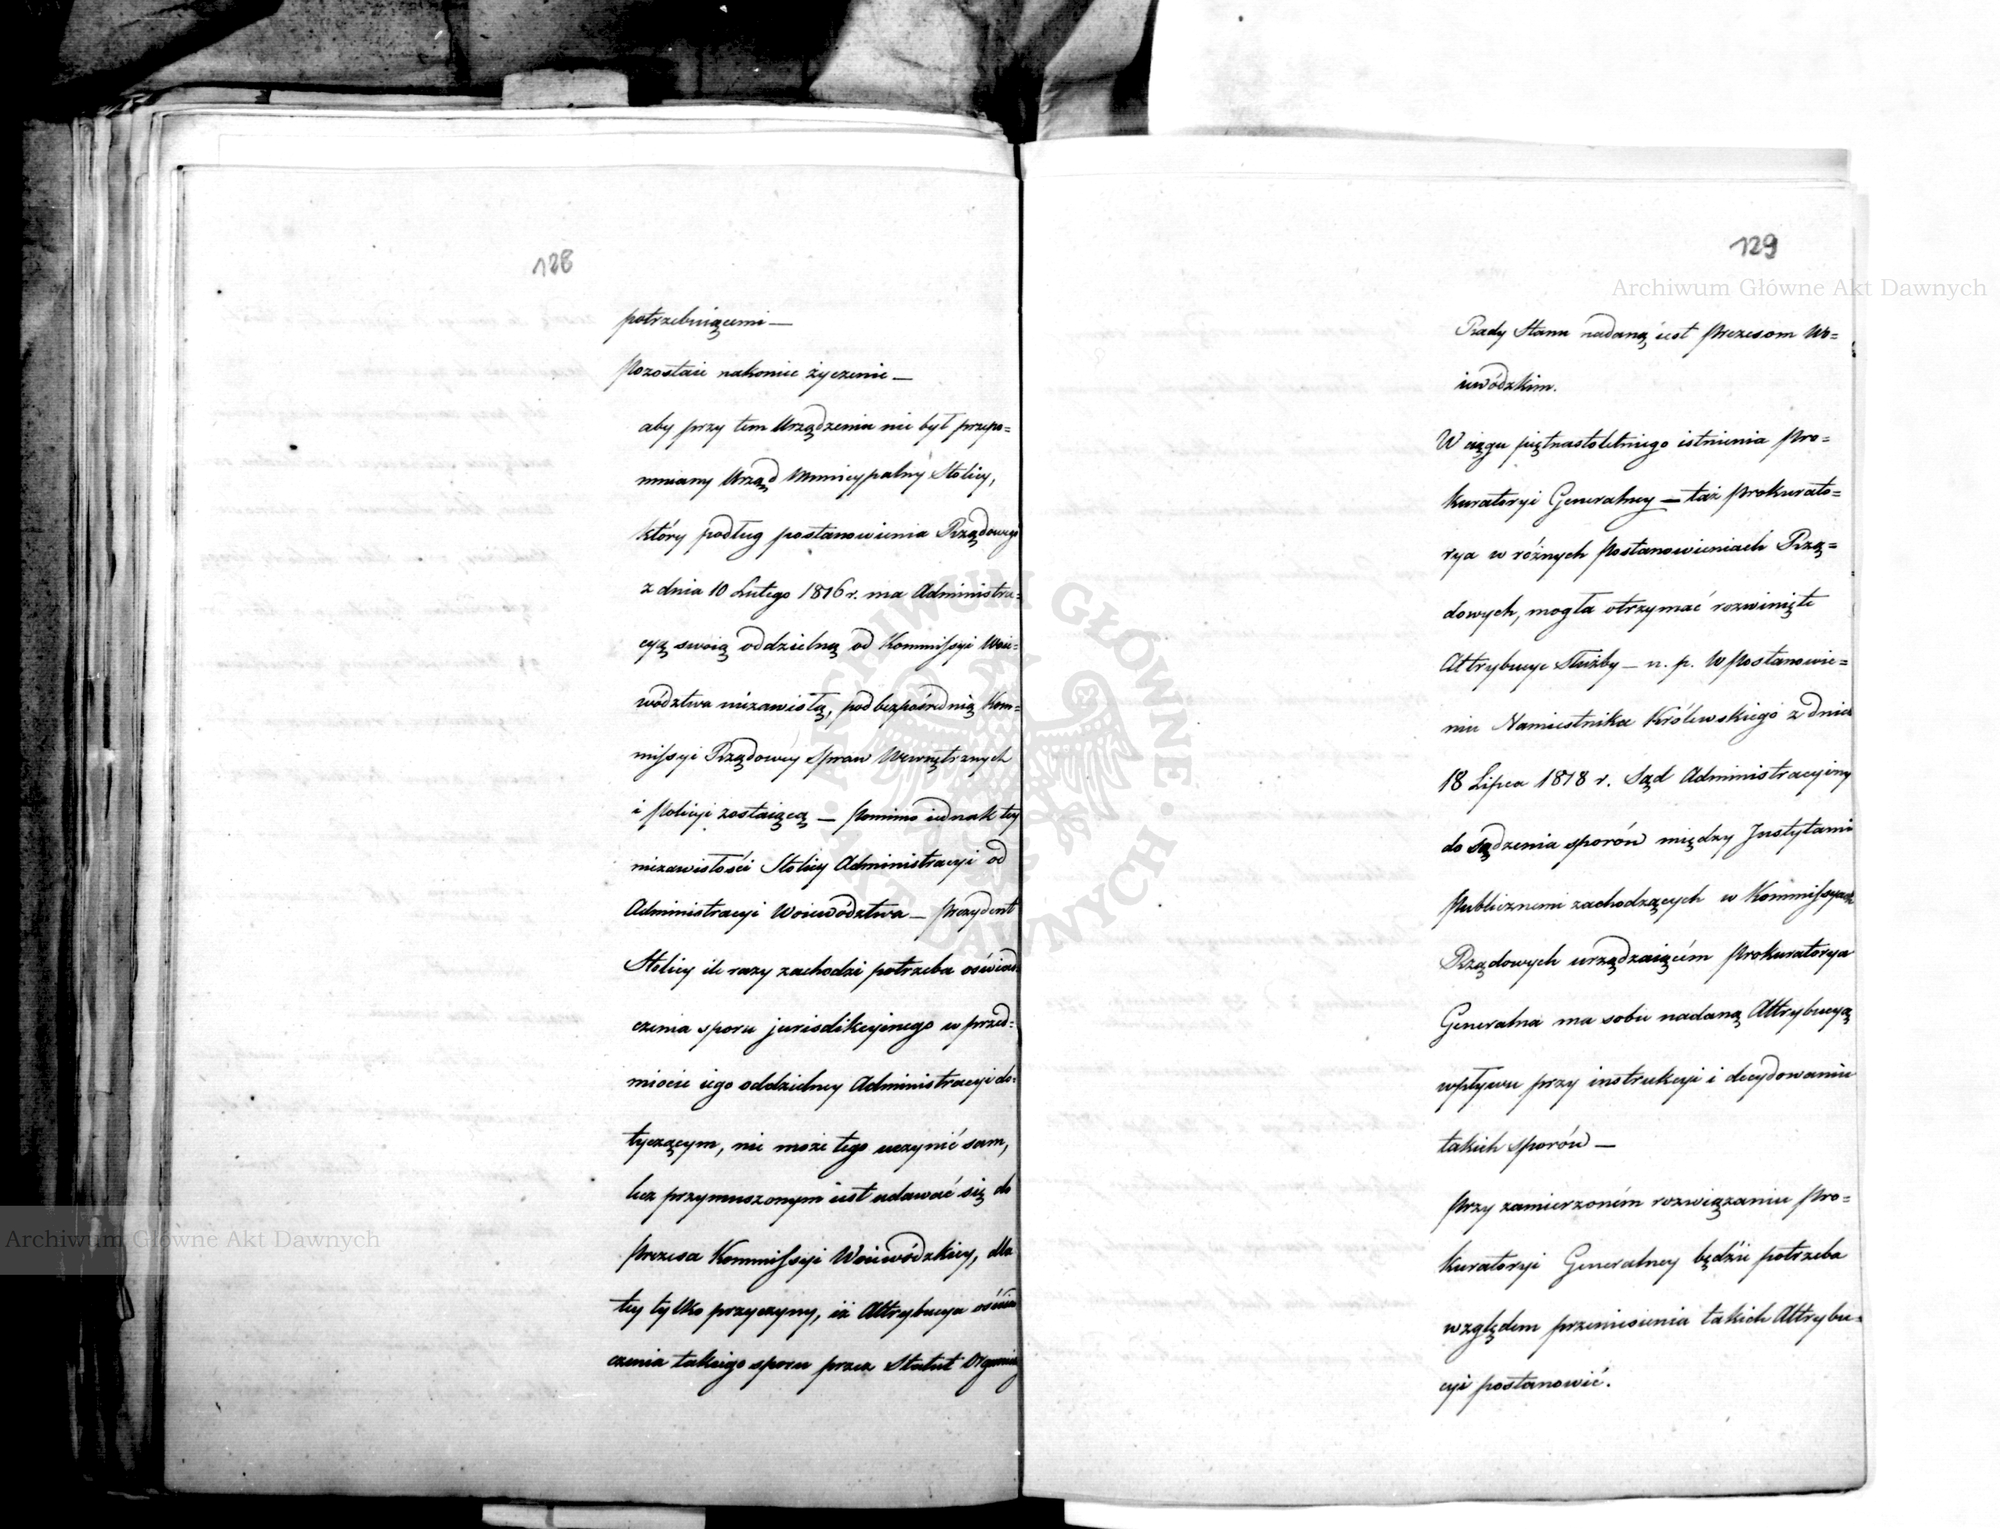 128
potrzebuiącemi —
Pozostaie nakoniec życzenie —
aby przy tem Urządzeniu nie był przepo=
mniany Urząd Municypalny Stolicy,
który podług postanowienia Rządowego
z dnia 10 Lutego 1816 r. ma Administra=
cyą swoią oddzielną od Kommissyi Woie=
wództwa niezawisłą, pod bezpośrednią Kom=
missyi Rządowey Spraw Wewnętrznych
i Policyi zostaiącą — Pomimo iednak tey
niezawisłości Stolicy Administracyi od
Administracyi Woiewództwa — Prezydent
Stolicy ile razy zachodzi potrzeba oświad
czenia sporu jurisdikcyinego w przed=
miocie iego oddzielney Administracyi do=
tyczącym, nie może tego uczynić sam,
lecz przymuszonym iest udawać się do
Prezesa Kommissyi Woiewódzkiey, dla
tey tylko przyczyny, iż Attrybucya oświad
czenia takiego sporu przez Statut Organicz
129
Rady Stanu nadaną iest Prezesom Wo=
iewódzkim.
W ciągu piętnastoletniego istnienia Pro=
kuratoryi Generalney — taż Prokurato=
rya w różnych Postanowieniach Rzą=
dowych, mogła otrzymać rozwinięte
Attrybucye Służby — n. p. w Postanowie=
niu Namiestnika Królewskiego z dnia
18 Lipca 1818 r. Sąd Administracyiny
do sądzenia sporów między Instytami
Publicznemi zachodzących w Kommissyach
Rządowych urządzaiącém Prokuratorya
Generalna ma sobie nadaną Attrybucyą
wpływu przy instrukcyi i decydowaniu
takich sporów —
Przy zamierzoném rozwiązaniu Pro=
kuratoryi Generalney będzie potrzeba
względem przeniesienia takich Attrybu=
cyi postanowić.
Archiwum Główne Akt Dawnych
Archiwum Główne Akt Dawnych
ARCHIWUM GŁÓWNE AKT DAWNYCH